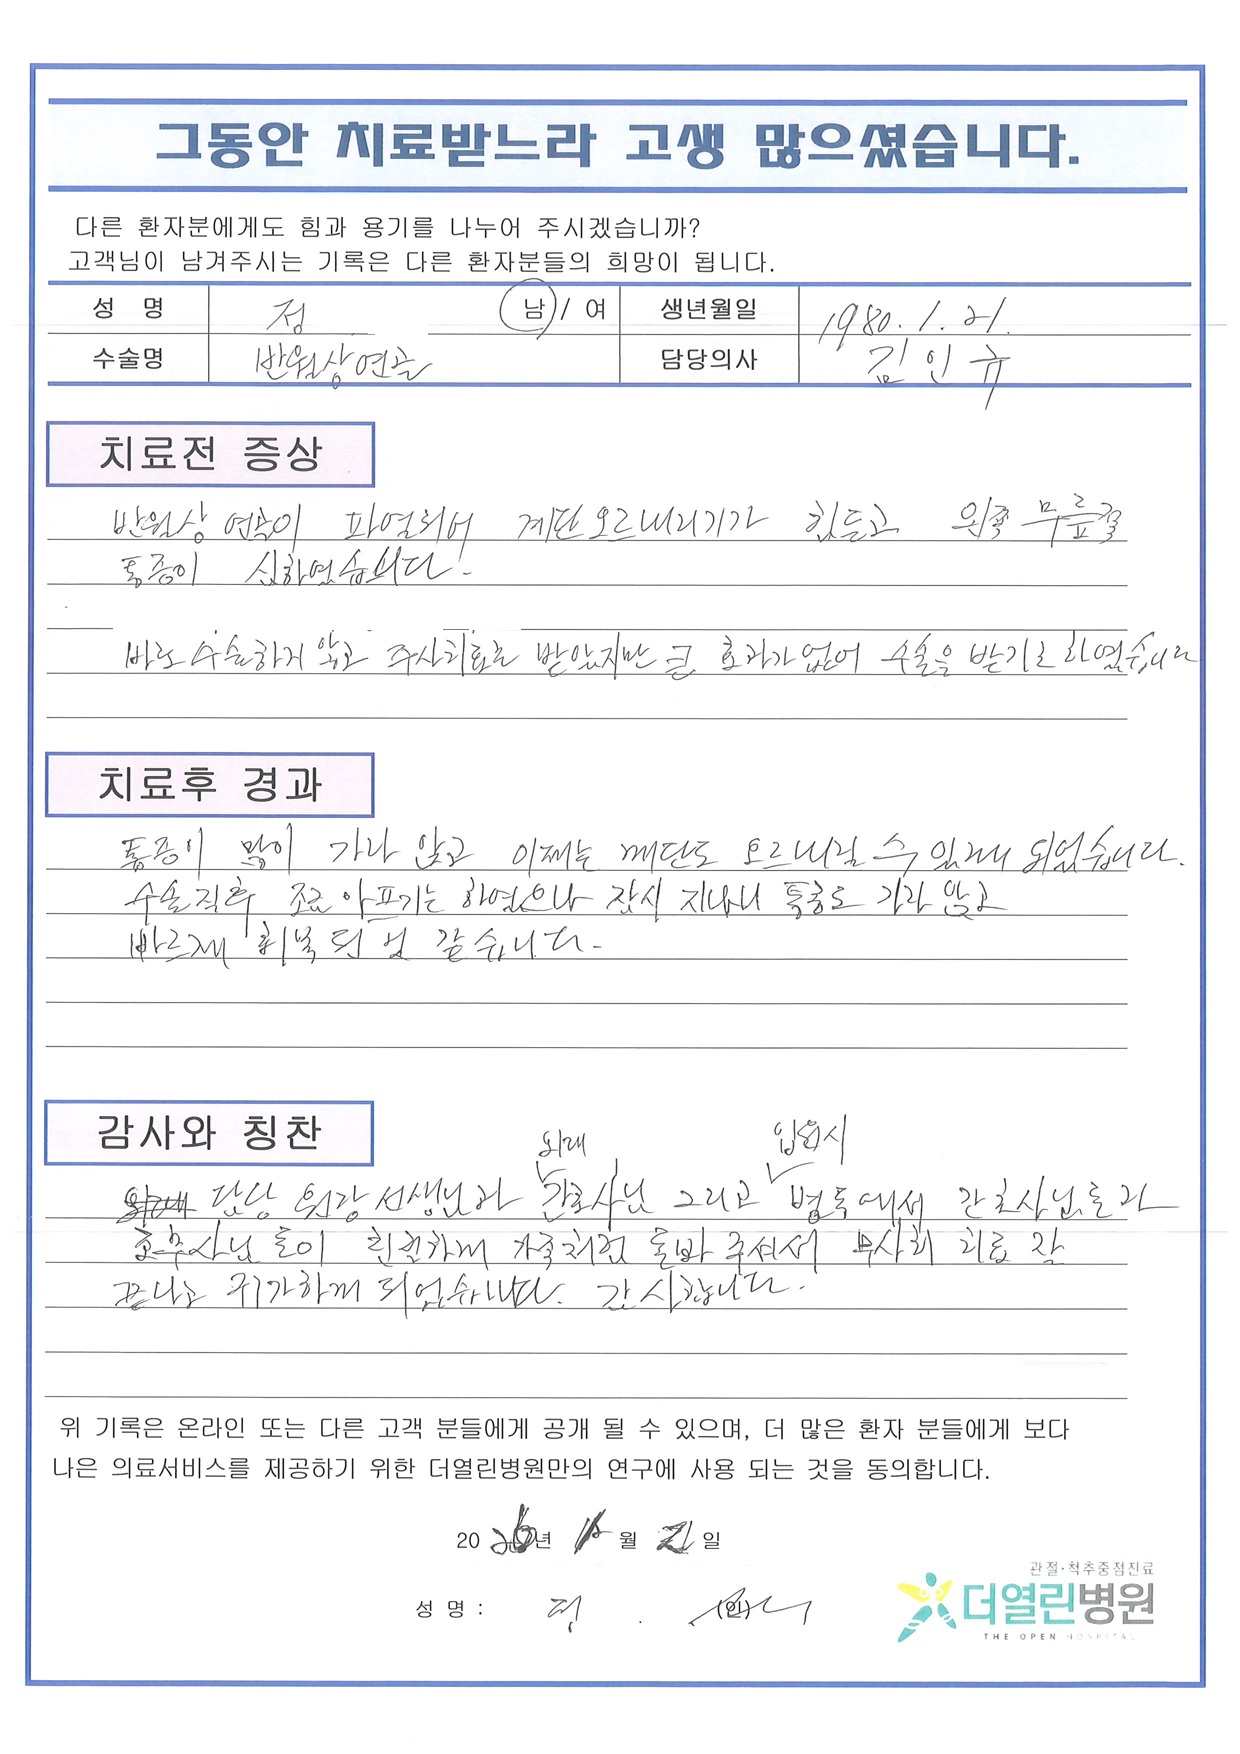 그동안 치료받느라 고생 많으셨습니다.
다른 환자분에게도 힘과 용기를 나누어 주시겠습니까?
고객님이 남겨주시는 기록은 다른 환자분들의 희망이 됩니다.
성 명 정 남 / 여 생년월일 1980. 1. 21.
수술명 반월상연골 담당의사 김인규
치료전 증상
반월상 연골이 파열되어 계단오르내리기가 힘들고 왼쪽 무릎
통증이 심하였습니다.
바로 수술하지 않고 주사치료를 받았지만 큰 효과가 없어 수술을 받기로 하였습니다
치료후 경과
통증이 많이 가라 앉고 이제는 계단도 오르내릴 수 있게 되었습니다.
수술직후 조금 아프기는 하였으나 잠시 지나니 통증도 가라 앉고
빠르게 회복 되 것 같습니다.
감사와 칭찬
외래 입원시
담당 원장선생님과 간호사님 그리고 병동에서 간호사님들과
님들이 친절하게 가족처럼 돌봐 주셔서 무사히 치료 잘
끝나고 귀가하게 되었습니다. 감사합니다.
위 기록은 온라인 또는 다른 고객 분들에게 공개 될 수 있으며, 더 많은 환자 분들에게 보다
나은 의료서비스를 제공하기 위한 더열린병원만의 연구에 사용 되는 것을 동의합니다.
20 년 월 일
성 명 : 정 (인)
관절·척추중점진료
더열린병원
THE OPEN HOSPITAL